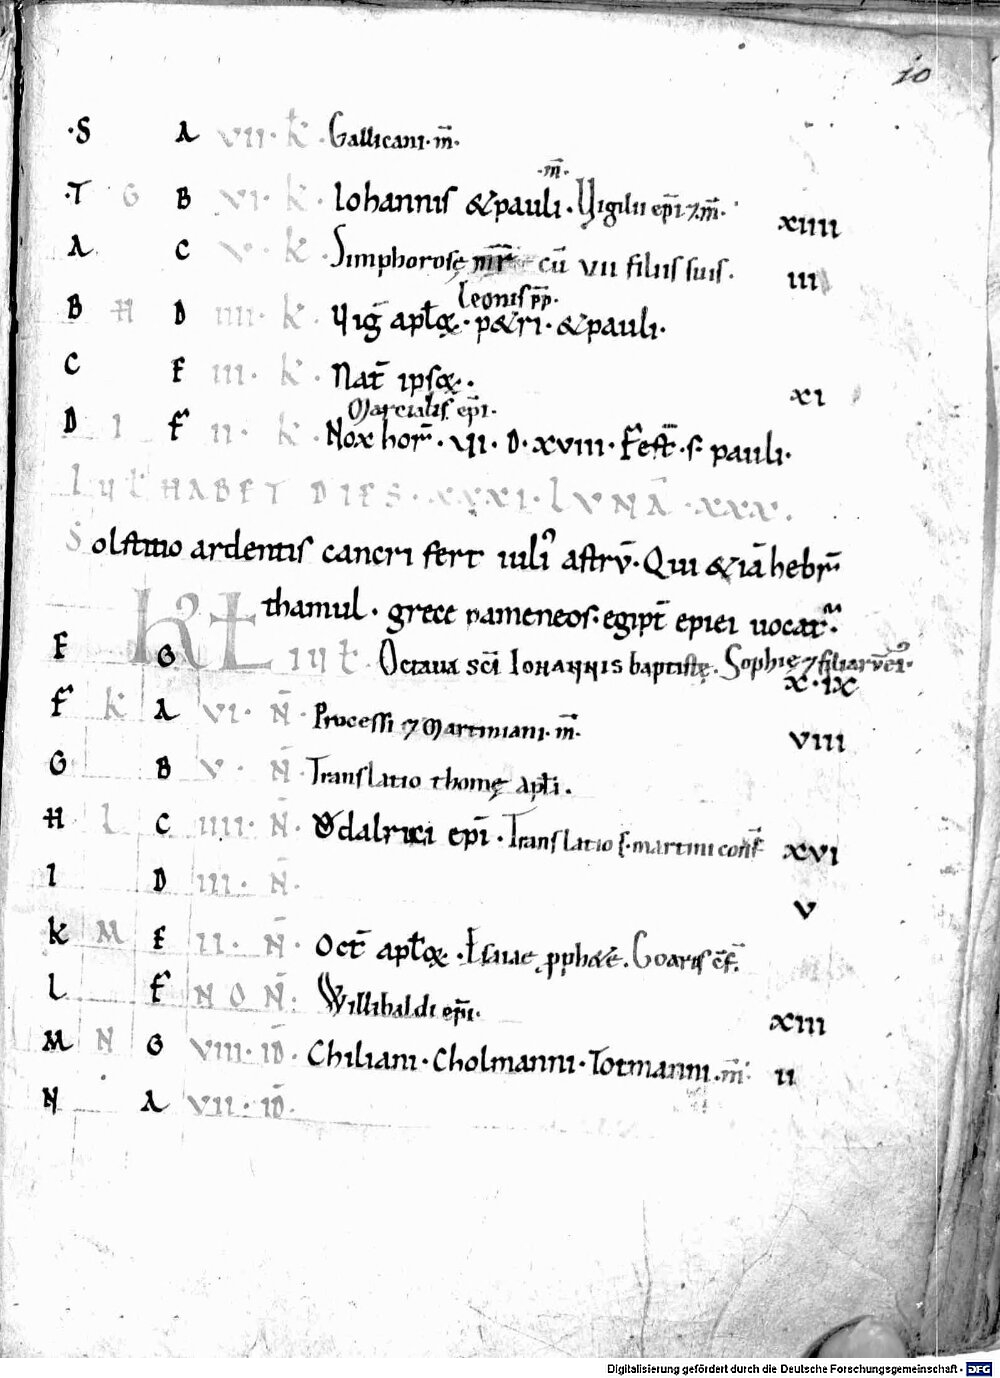 10
·S A VII· k̄ · Gallicani· m̄·
·T G B VI· k · Iohannis & pauli · Vigilii ep̄i ⁊ m̄· XIIII
·m̄·
A C V· k · Simphorosę m̄r̄ cū VII filiis suis · III
Leonis pp̄·
B H D IIII· k · Viḡ apl̄oꝝ· p&ri· & pauli·
C E III· k · Nat̄ ipsoꝝ· XI
Marcialis ep̄i·
D I F II· k · Nox hor̄· VI· D· XVIII· Fest̄· s· pauli·
IUL̄ HABET DIES· XXXI· LVNĀ· XXX·
Solstitio ardentis cancri fert iuliˀ astrū· Qui & iā hebr̄
KL thamul · grece pameneos· egipt̄ epiei uocat᷑·
E G IUL̄· Octaua sc̄i IOHANNIS baptistę· Sophię ⁊ filiarū eiˀ·
X·IX
F K A VI· N̄· Processi ⁊ Martiniani· m̄· VIII
G B V· N̄· Translatio thomę apl̄i·
H L C IIII· N̄· Odalrici ep̄i · Translatio s· martini conf̄ XVI
I D III· N̄· V
K M E II· N̄· Oct̄ apl̄oꝝ · Isaiae pph&e· Goaris c̄f̄·
L F NON̄· Willibaldi ep̄i· XIII
M N G VIII· ID̄· Chiliani· Cholmanni· Totmanni· m̄· II
N A VII· ID̄·
Digitalisierung gefördert durch die Deutsche Forschungsgemeinschaft - DFG